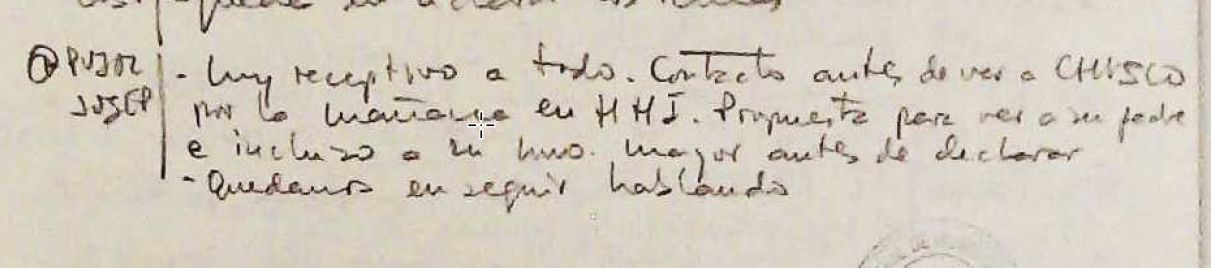 puede
PUJOL - Muy receptivo a todo. Contacto antes de ver a CHISCO
JOSEP por la mañana en HHI. Propuesta para ver a su padre
e incluso a su hno. mayor antes de declarar
- Quedamos en seguir hablando